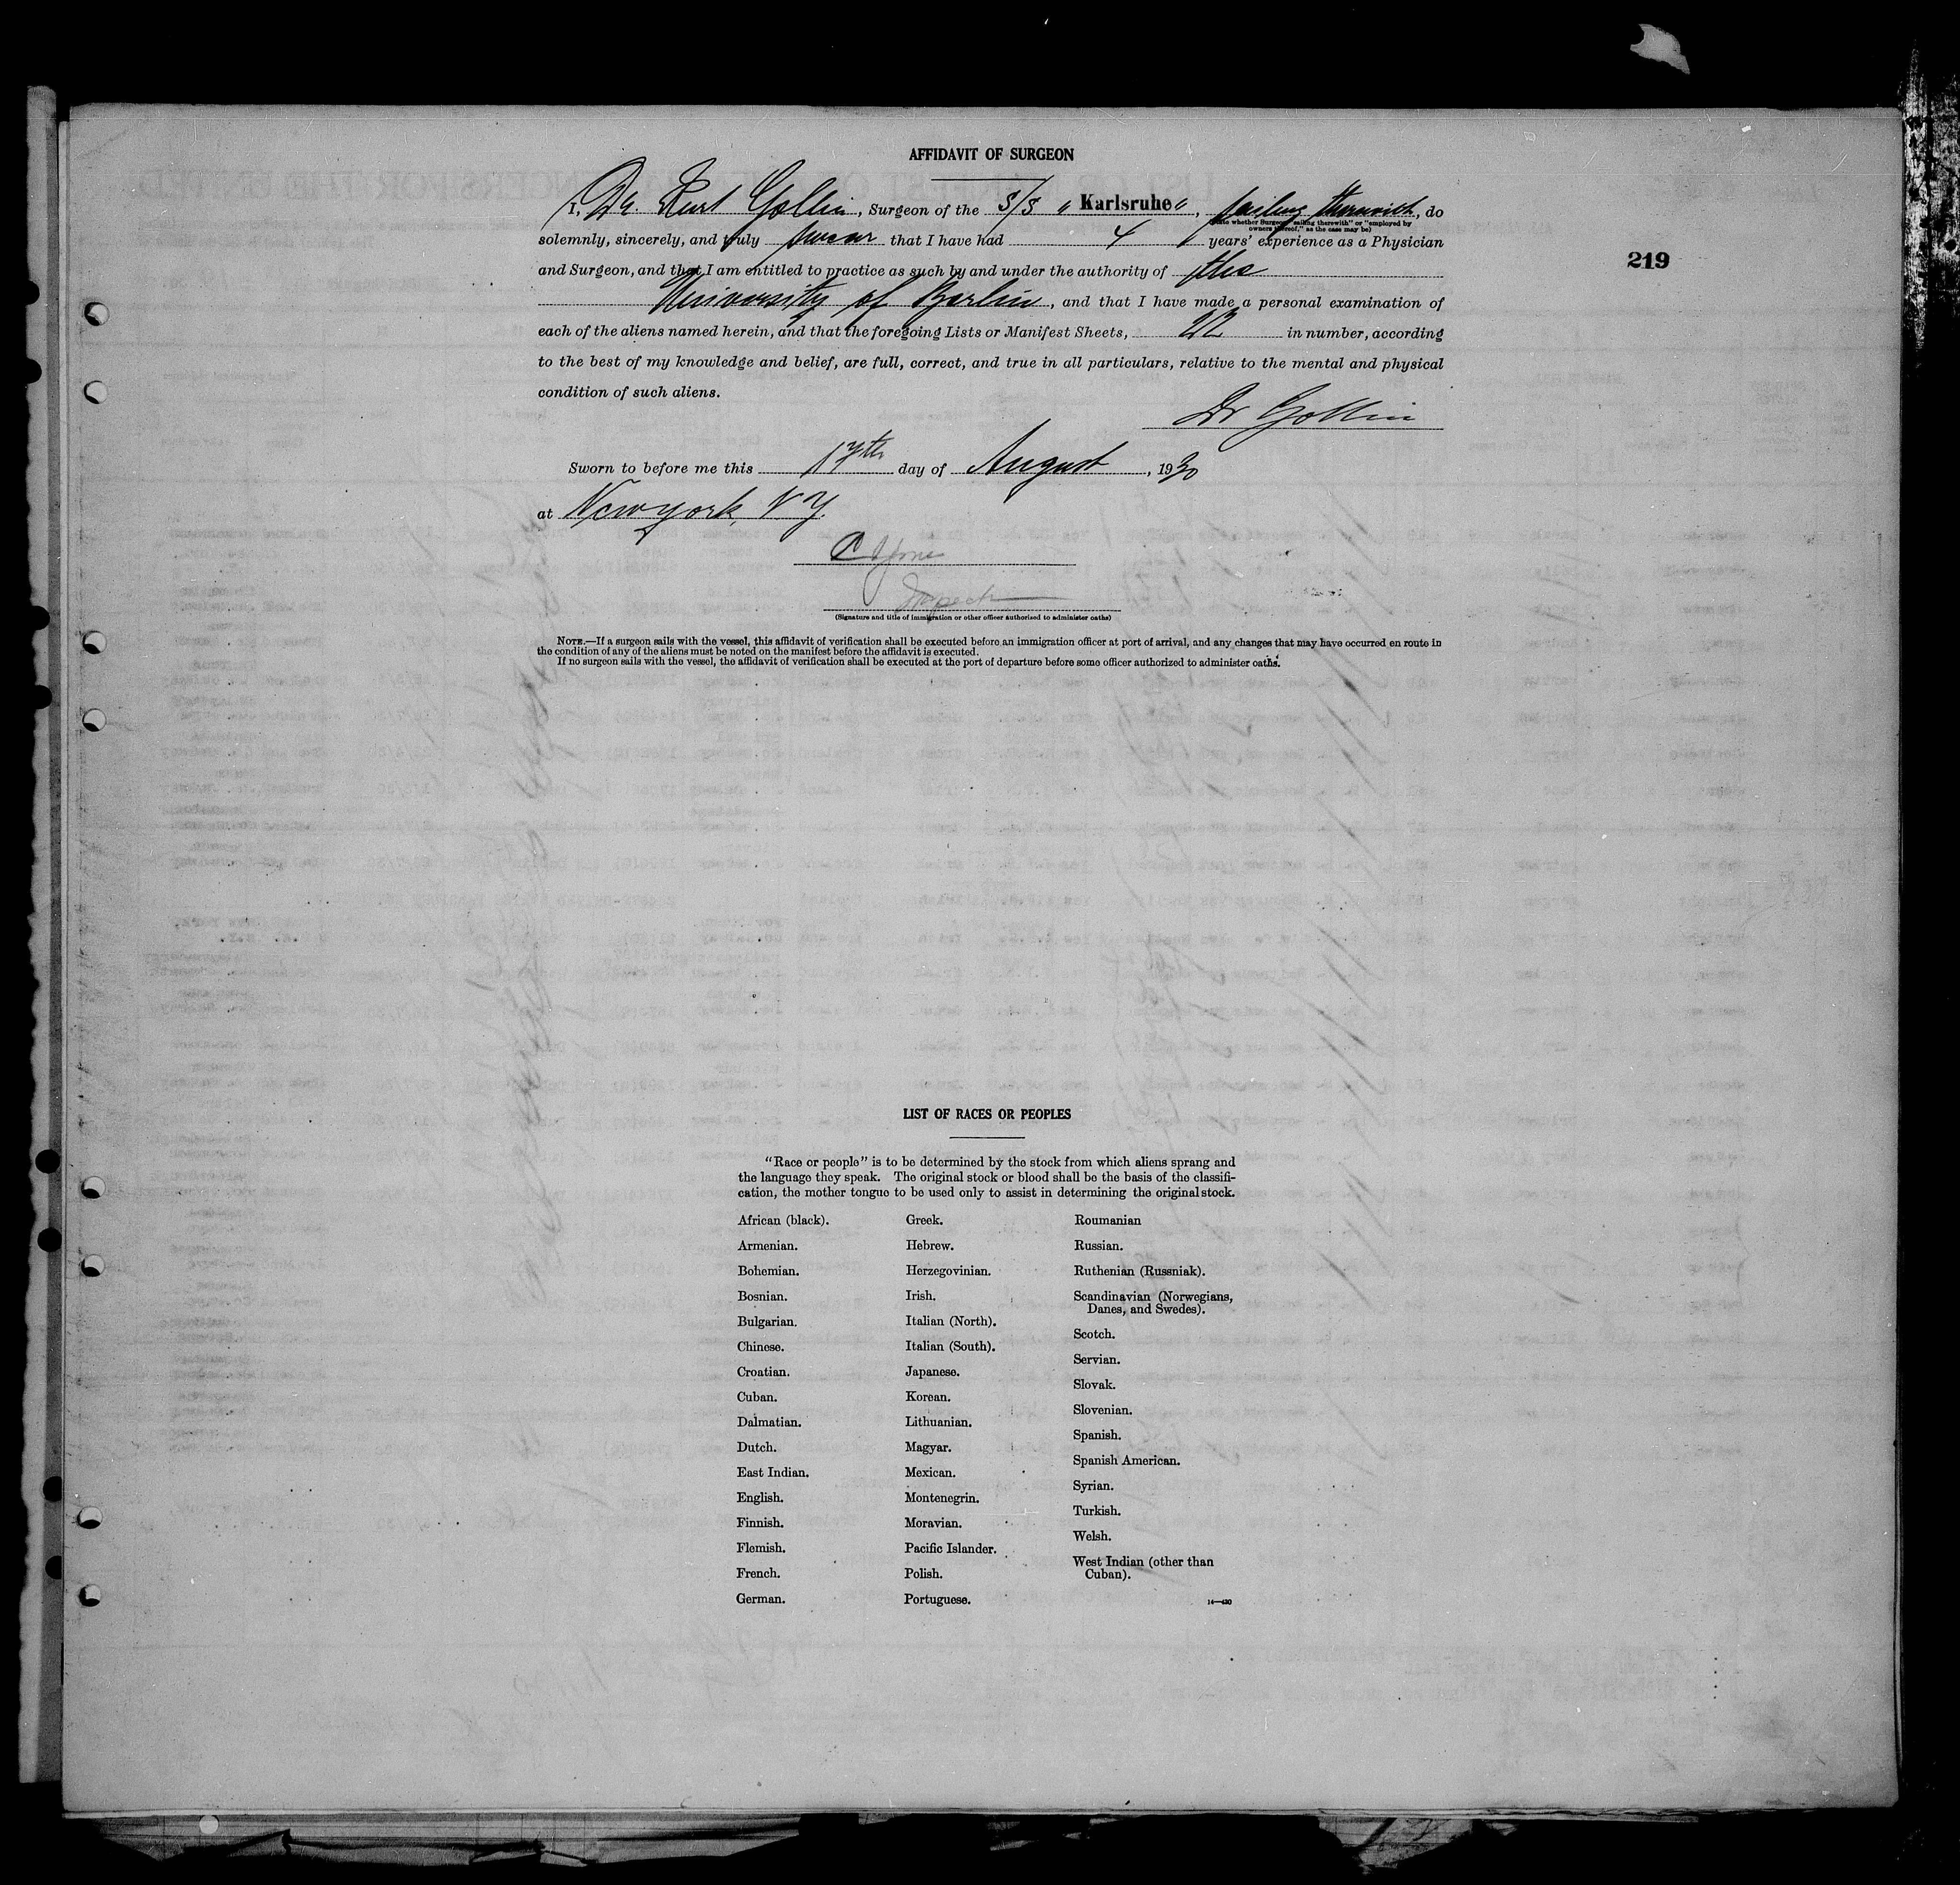 AFFIDAVIT OF SURGEON
I, Dr. Kurt Gollin, Surgeon of the S/S "Karlsruhe", sailing therewith, do
(State whether Surgeon "sailing therewith" or "employed by
owners thereof," as the case may be)
solemnly, sincerely, and truly swear that I have had 4 years' experience as a Physician
219
and Surgeon, and that I am entitled to practice as such by and under the authority of the
University of Berlin, and that I have made a personal examination of
each of the aliens named herein, and that the foregoing Lists or Manifest Sheets, 22 in number, according
to the best of my knowledge and belief, are full, correct, and true in all particulars, relative to the mental and physical
condition of such aliens.
Dr Gollin
Sworn to before me this 17th day of August, 1930
at New York, N.Y.
(Signature and title of immigration or other officer authorized to administer oaths)
NOTE.—If a surgeon sails with the vessel, this affidavit of verification shall be executed before an immigration officer at port of arrival, and any changes that may have occurred en route in
the condition of any of the aliens must be noted on the manifest before the affidavit is executed.
If no surgeon sails with the vessel, the affidavit of verification shall be executed at the port of departure before some officer authorized to administer oaths.
LIST OF RACES OR PEOPLES
"Race or people" is to be determined by the stock from which aliens sprang and
the language they speak. The original stock or blood shall be the basis of the classifi-
cation, the mother tongue to be used only to assist in determining the original stock.
African (black).
Armenian.
Bohemian.
Bosnian.
Bulgarian.
Chinese.
Croatian.
Cuban.
Dalmatian.
Dutch.
East Indian.
English.
Finnish.
Flemish.
French.
German.
Greek.
Hebrew.
Herzegovinian.
Irish.
Italian (North).
Italian (South).
Japanese.
Korean.
Lithuanian.
Magyar.
Mexican.
Montenegrin.
Moravian.
Pacific Islander.
Polish.
Portuguese.
Roumanian
Russian.
Ruthenian (Russniak).
Scandinavian (Norwegians,
Danes, and Swedes).
Scotch.
Servian.
Slovak.
Slovenian.
Spanish.
Spanish American.
Syrian.
Turkish.
Welsh.
West Indian (other than
Cuban).
14—430